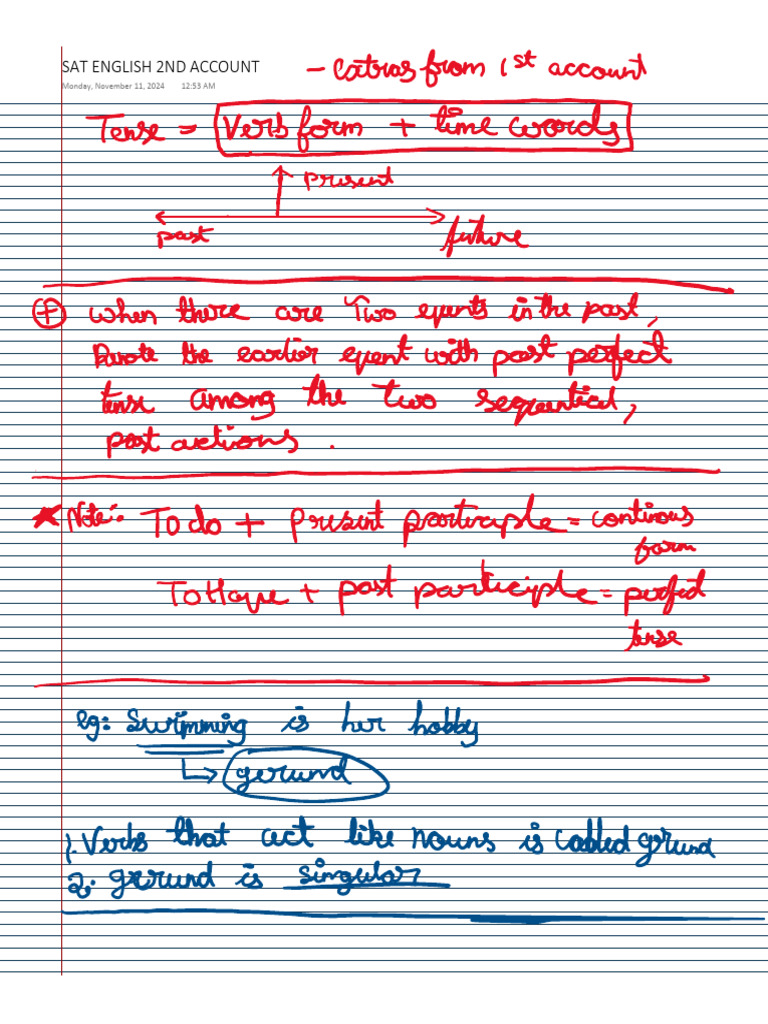 SAT ENGLISH 2ND ACCOUNT
- Extras from 1st account
Monday, November 11, 2024 12:53 AM
Tense = Verb form + time words
present
past
future
+ When there are Two events in the past,
Denote the earlier event with past perfect
tense among the two sequential,
past actions .
* Note:- To do + present participle = continous
form
To Have + past participle = perfect
tense
Eg: Swimming is her hobby
↳ gerund
1. Verbs that act like nouns is called gerund
2. gerund is singular